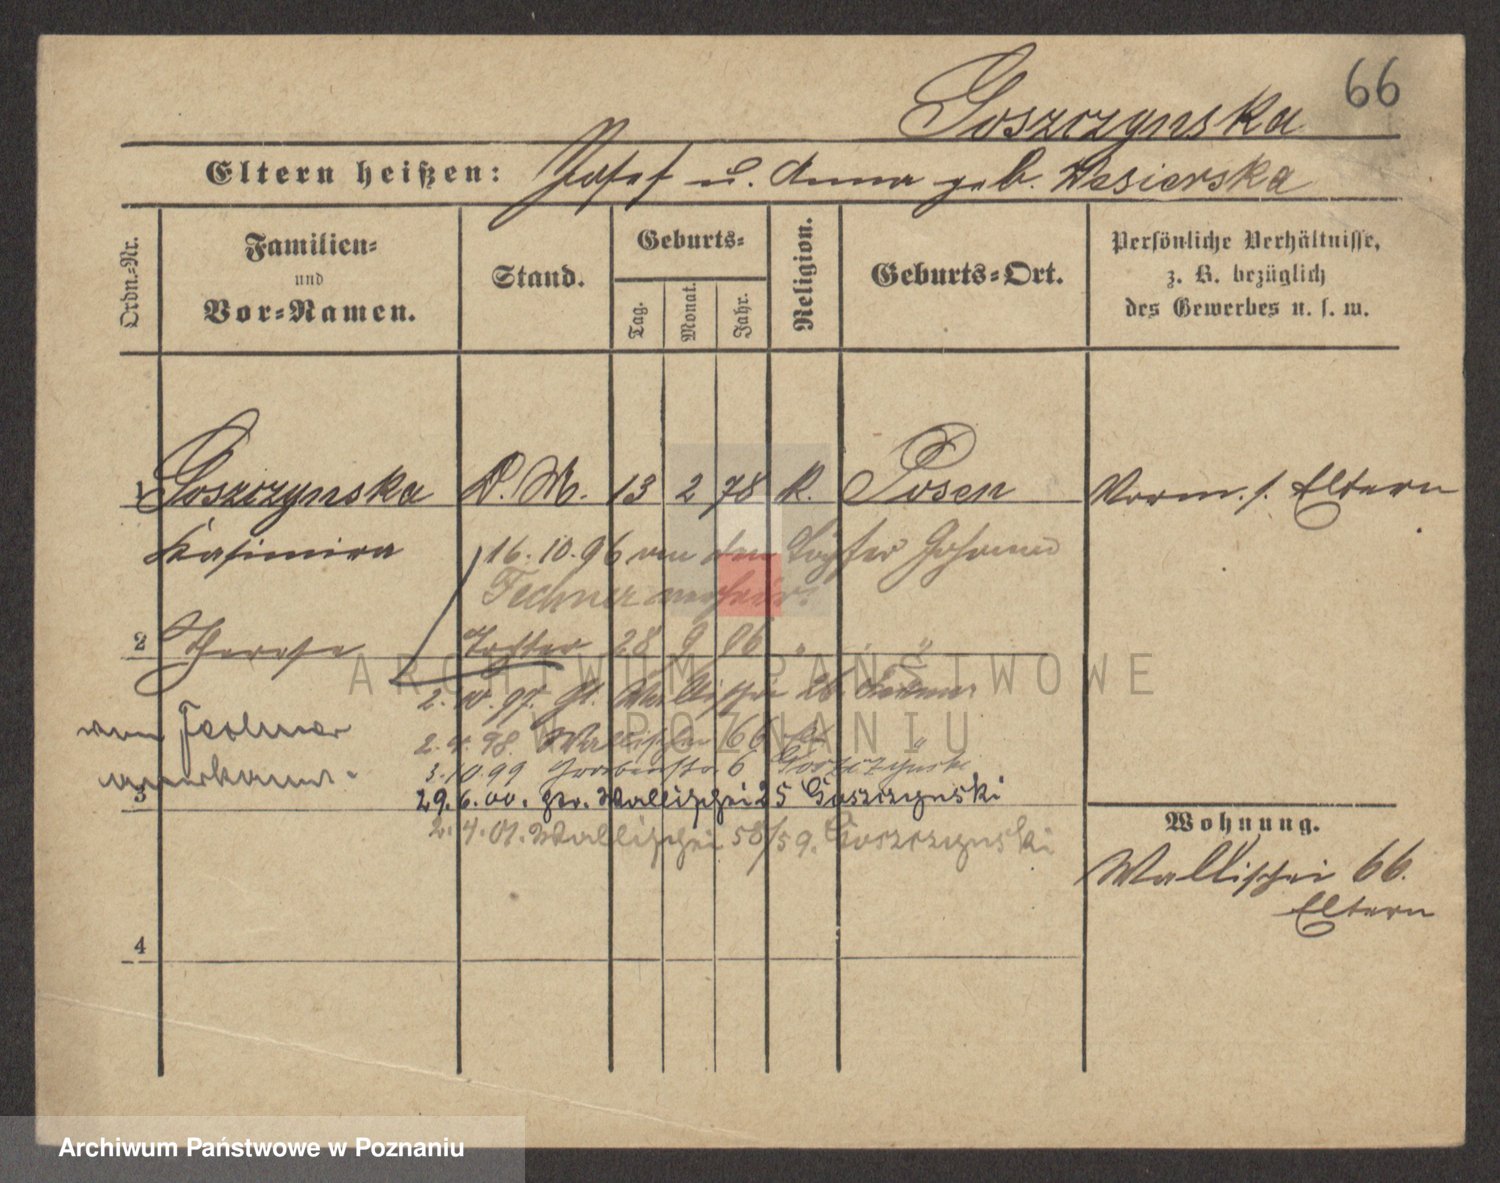 66
Goszczynska
Eltern heißen: Josef u. Anna geb. Wesierska
Ordn.-Nr.
Familien-
und
Vor-Namen.
Stand.
Geburts-
Tag.
Monat.
Jahr.
Religion.
Geburts-Ort.
Persönliche Verhältnisse,
z. B. bezüglich
des Gewerbes u. s. w.
1 Goszczynska D. M. 13 2 78 K. Posen Vorm. s. Eltern
Kasimira 16.10.96 an den Töpfer Johann
Fechner verheir.
2 Therese Tochter 28 9 96 " " "
2.10.97. Wallischei
von Fechner
2.4.98. Wallischei 66
anerkannt.
3.10.99 6 Goszczynski
3
29.6.00. Wallischei 25 Goszczynski
2.4.01. Wallischei 58/59. Goszczynski
Wohnung.
Wallischei 66.
Eltern
4
ARCHIWUM PAŃSTWOWE
W POZNANIU
Archiwum Państwowe w Poznaniu